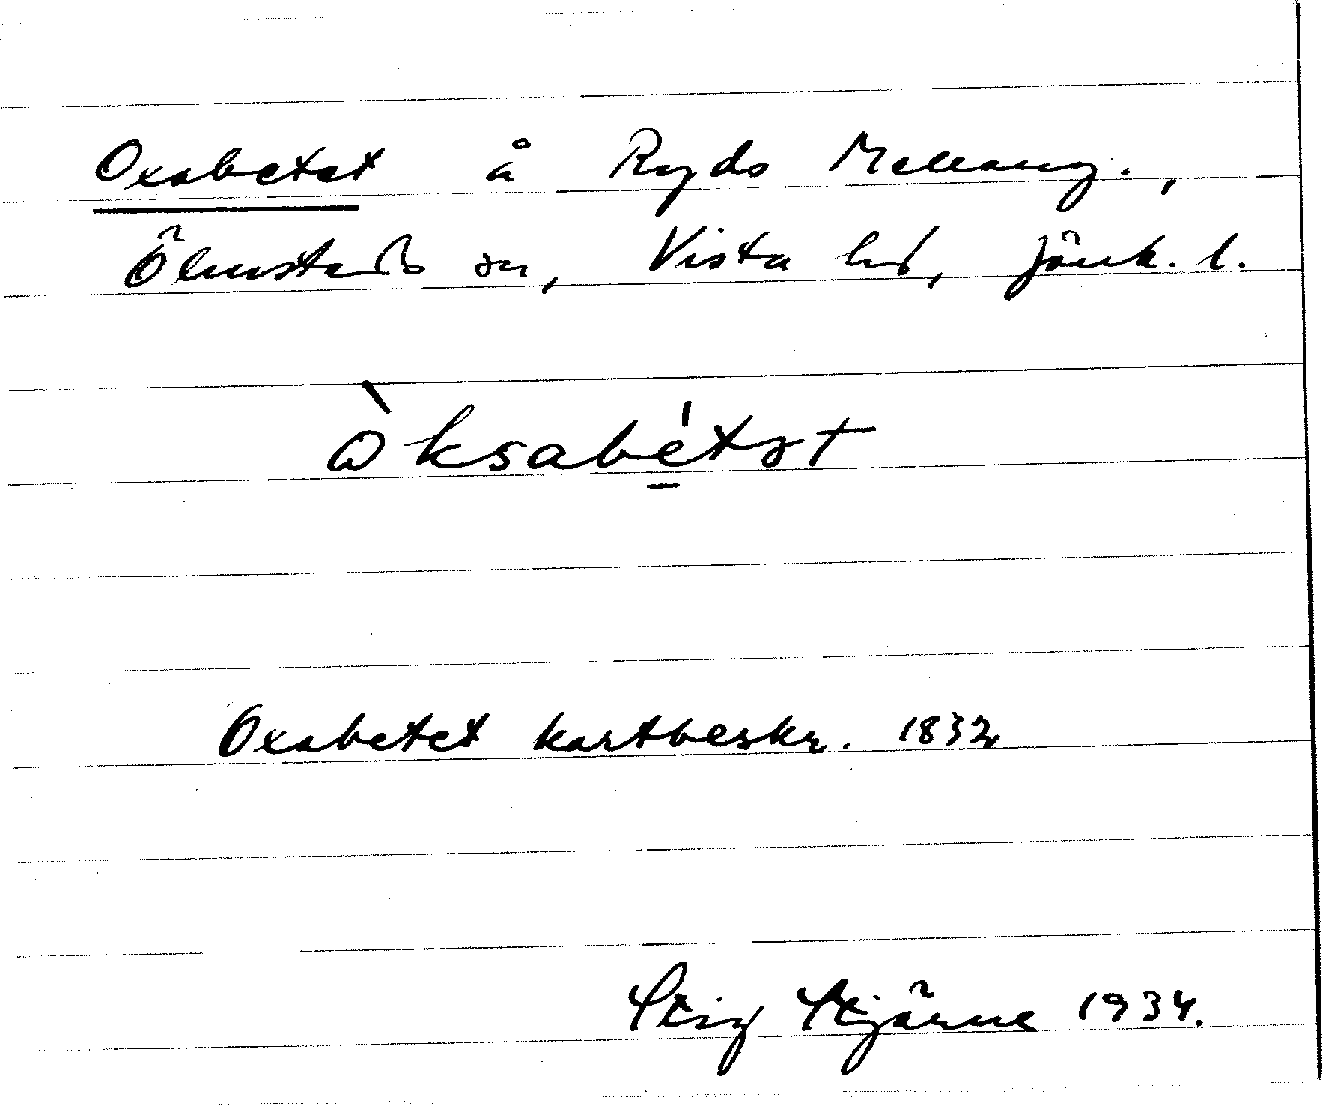 Oxabetet å Ryds Mellang.,
Ölmstads sn, Vista hd, Jönk. l.
òksabétət
Oxabetet kartbeskr. 1832
Stig Stjärne 1934.